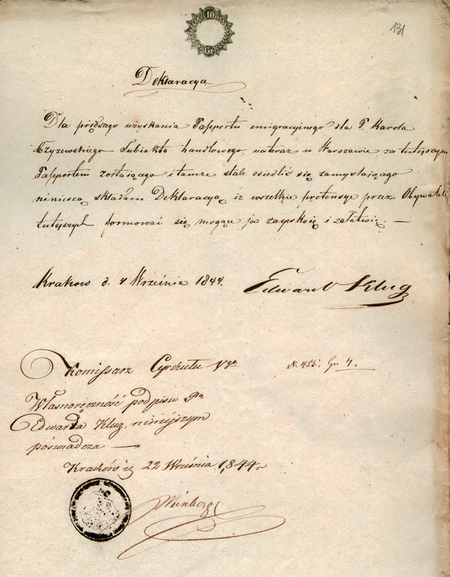 10
Gr
131
Deklaracya
Dla prędszego uzyskania Passportu emigracyjnego dla P. Karola
Czyzewskiego Subiekta handlowego, na teraz w Warszawie za tutejszym
Passportem zostającego i tamże stale osiedlić się zamyslającego
niniejszą składam Deklaracyą, iż wszelkie pretensye przez Obywateli
tutejszych formować się mogące ja zaspokoię i załatwię. —
Krakow d. 4 Września 1844.
Edward Klug
Komissarz Cyrkułu Vgo
N. 455. Gm. 4.
Własnoręczność podpisu Pa
Edwarda Klug niniejszym
poświadcza —
Kraków d. 22 Września 1844 r.